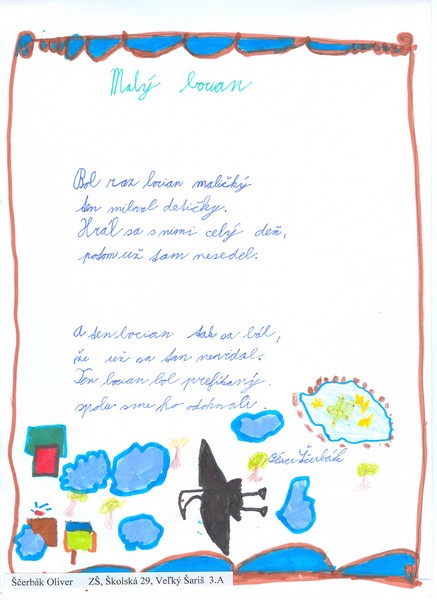 Malý bocian
Bol raz bocian maličký
ten miloval detičky.
Hral sa s nimi celý deň,
potom už sam nesedel.
A ten bocian tak sa bál,
že už sa tan nevidal.
Ten bocian bol prefíkaný.
spolu sme ho odohnali.
Oliver Ščerbák
Ščerbák Oliver ZŠ, Školská 29, Veľký Šariš 3.A